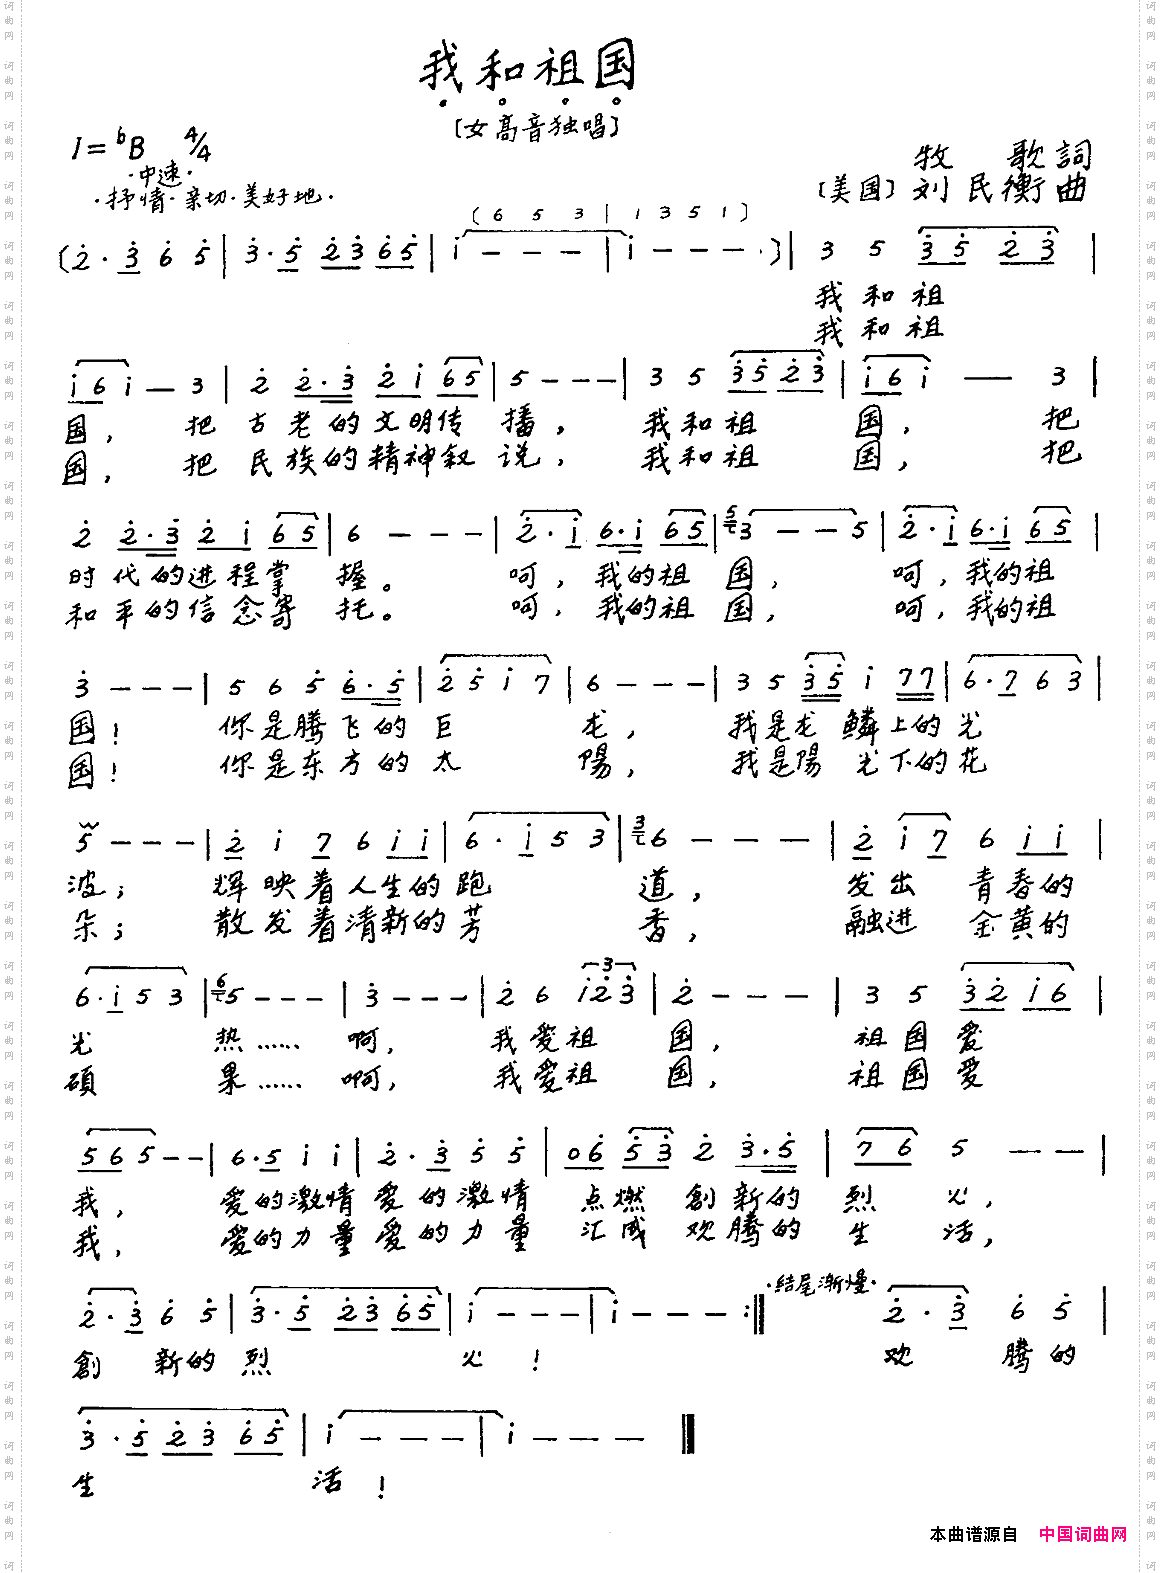 我和祖国
〔女高音独唱〕
1=ᵇB 4/4
·中速·
·抒情·亲切·美好地·
牧 歌 詞
〔美国〕刘民衡 曲
(6 5 3 | 1 3 5 1)
(2̇·3̇ 6̇ 5̇ | 3̇·5̇ 2̇3̇ 6̇5̇ | i - - - | i - - - ) | 3 5 3̇5̇ 2̇3̇ |
我和祖
我和祖
i6i - 3 | 2̇ 2̇·3̇ 2̇i 65 | 5 - - - | 3 5 3̇5̇2̇3̇ | i6i - 3 |
国, 把 古老的文明传播, 我和祖 国, 把
国, 把 民族的精神叙说, 我和祖 国, 把
2̇ 2̇·3̇ 2̇i 65 | 6 - - - | 2̇·i 6·i 65 | 5 3 - - 5 | 2̇·i 6·i 65 |
时代的进程掌 握。 呵, 我的祖 国, 呵, 我的祖
和平的信念寄 托。 呵, 我的祖 国, 呵, 我的祖
3̇ - - - | 5 6 5̇ 6̇·5̇ | 2̇ 5̇ i 7 | 6 - - - | 3 5 3̇5̇ i 77 | 6·7 6 3 |
国! 你是腾飞的巨 龙, 我是龙鳞上的光
国! 你是东方的太 陽, 我是陽光下的花
5̇ - - - | 2̇ i 7 6 ii | 6·i 5 3 | 3 6 - - - | 2̇ i7 6 ii |
波; 辉映着人生的跑 道, 发出 青春的
朵; 散发着清新的芳 香, 融进 金黄的
6·i 5 3 | 6 5 - - - | 3̇ - - - | 2̇ 6 3 i2̇3̇ | 2̇ - - - | 3 5 3̇2̇ i6 |
光 热…… 啊, 我爱祖 国, 祖国爱
硕 果…… 啊, 我爱祖 国, 祖国爱
565 - - | 6·5 i i | 2̇·3̇ 5̇ 5̇ | 06̇ 5̇3̇ 2̇ 3̇·5̇ | 76 5 - - |
我, 爱的激情爱的激情 点燃 創新的 烈 火,
我, 爱的力量爱的力量 汇成 欢腾的 生 活,
·結尾渐慢·
2̇·3̇ 6̇ 5̇ | 3̇·5̇ 2̇3̇ 6̇5̇ | i - - - | i - - - :‖ 2̇·3̇ 6̇ 5̇ |
創 新的烈 火! 欢 腾的
3̇·5̇ 2̇3̇ 6̇5̇ | i - - - | i - - - ‖
生 活!
本曲谱源自 中国词曲网